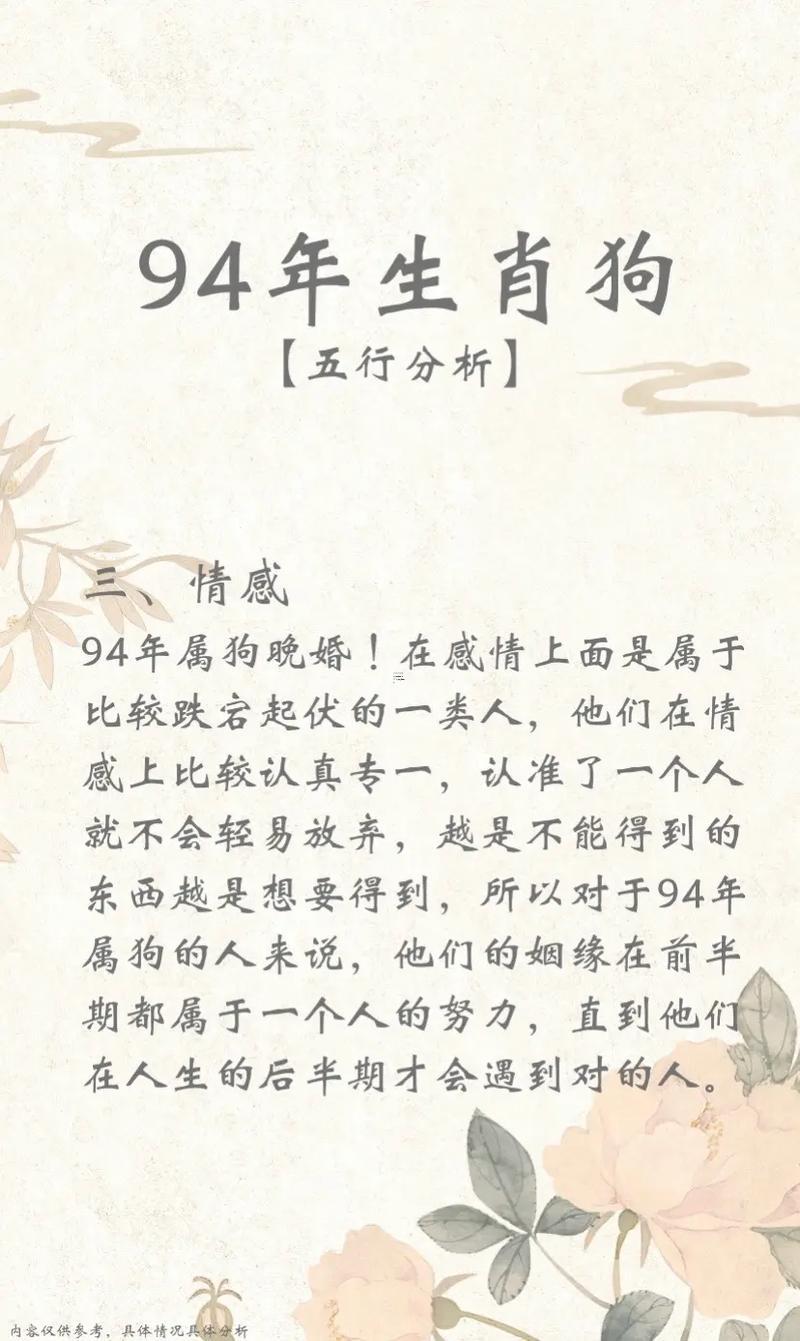 94年生肖狗
【五行分析】
三、情感
94年属狗晚婚！在感情上面是属于
比较跌宕起伏的一类人，他们在情
感上比较认真专一，认准了一个人
就不会轻易放弃，越是不能得到的
东西越是想要得到，所以对于94年
属狗的人来说，他们的姻缘在前半
期都属于一个人的努力，直到他们
在人生的后半期才会遇到对的人。
内容仅供参考，具体情况具体分析